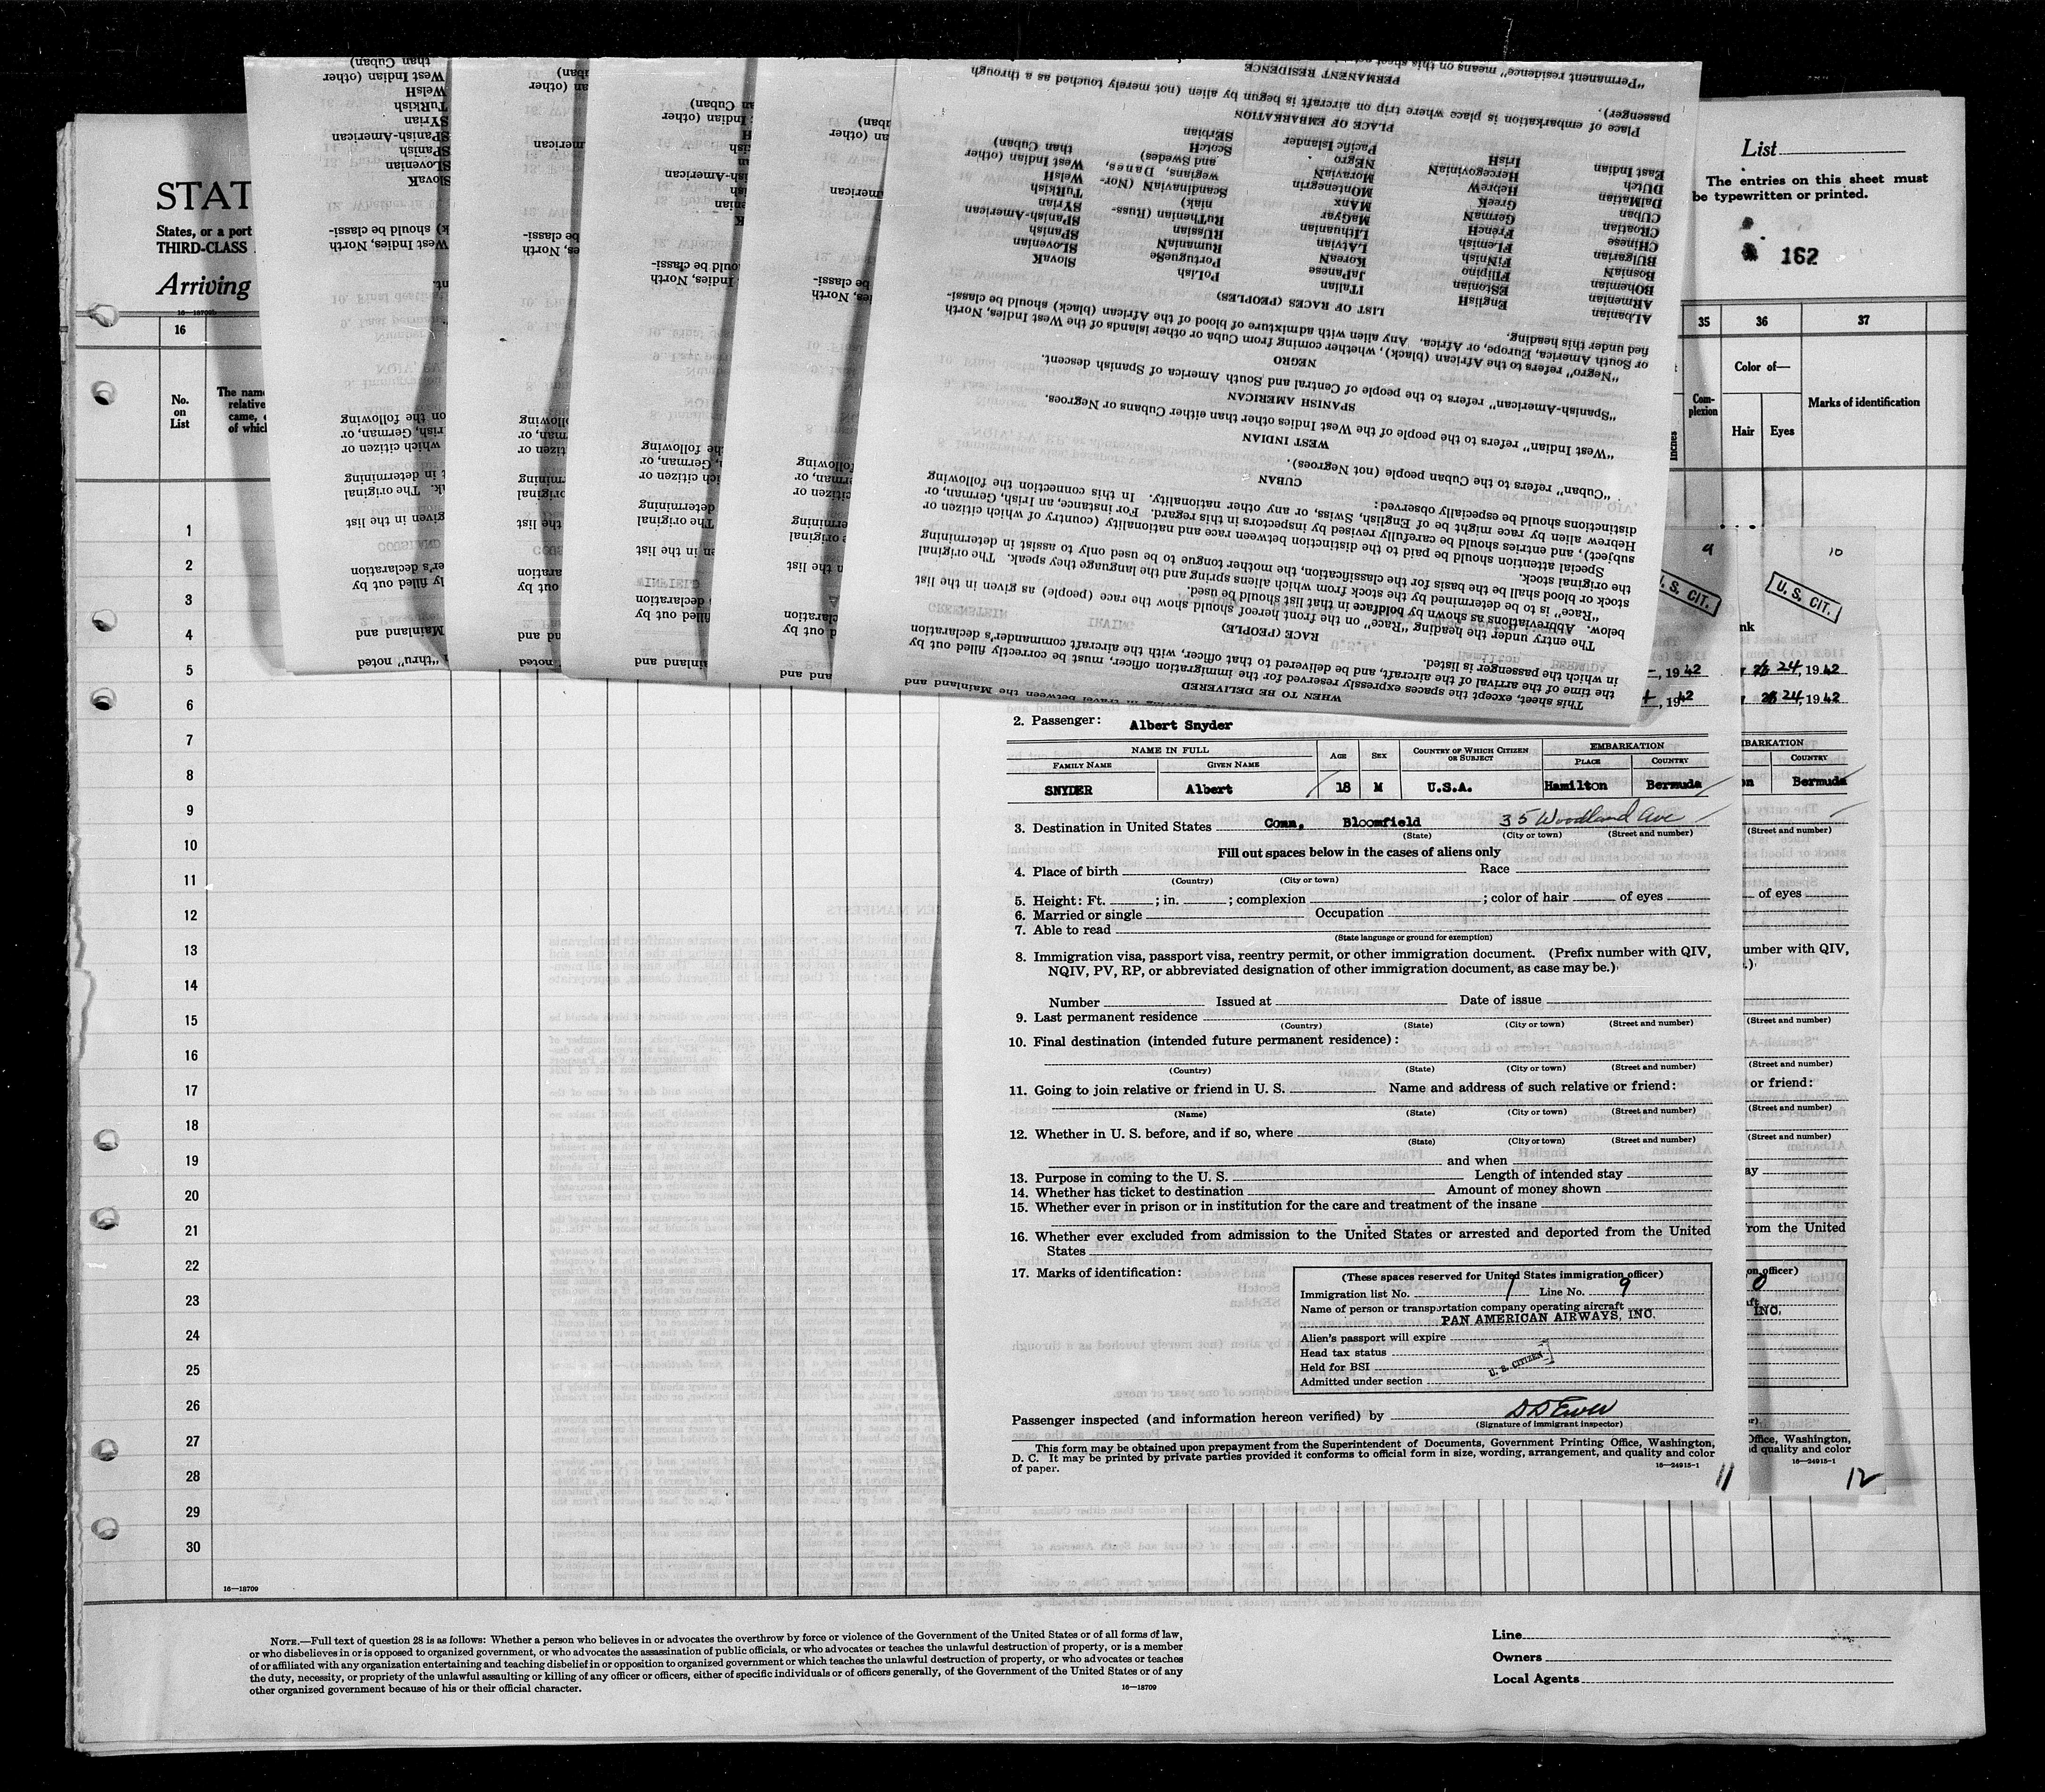 STAT
States, or a port
THIRD-CLASS
Arriving
16—18709
List
The entries on this sheet must
be typewritten or printed.
162
16
35
36
37
No.
on
List
The name
relative
came,
of which
Com-
plexion
Color of—
Hair
Eyes
Marks of identification
inches
1
2
3
4
5
6
7
8
9
10
11
12
13
14
15
16
17
18
19
20
21
22
23
24
25
26
27
28
29
30
16—18709
9
10
U. S. CIT.
U. S. CIT.
, 1942
24, 1942
, 1942
24, 1942
WHEN TO BE DELIVERED
This sheet, except the spaces expressly reserved for the immigration officer, must be correctly filled out by
the time of the arrival of the aircraft, and be delivered to that officer, with the aircraft commander's declaration
in which the passenger is listed.
RACE (PEOPLE)
The entry under the heading "Race" on the front hereof should show the race (people) as given in the list
below. Abbreviations as shown by boldface in that list should be used.
"Race" is to be determined by the stock from which aliens spring and the language they speak. The original
stock or blood shall be the basis for the classification, the mother tongue to be used only to assist in determining
the original stock.
Special attention should be paid to the distinction between race and nationality (country of which citizen or
subject), and entries should be carefully revised by inspectors in this regard. For instance, an Irish, German, or
Hebrew alien by race might be of English, Swiss, or any other nationality. In this connection the following
distinctions should be especially observed:
CUBAN
"Cuban" refers to the Cuban people (not Negroes).
WEST INDIAN
"West Indian" refers to the people of the West Indies other than either Cubans or Negroes.
SPANISH AMERICAN
"Spanish-American" refers to the people of Central and South America of Spanish descent.
NEGRO
"Negro" refers to the African (black), whether coming from Cuba or other islands of the West Indies, North
or South America, Europe, or Africa. Any alien with admixture of blood of the African (black) should be classi-
fied under this heading.
LIST OF RACES (PEOPLES)
ALbanian EnglisH ITalian PoLish SlovaK
ARmenian EStonian JaPanese PortuguеSe SLOvenian
BOhemian FIlipino KoreaN RumaniaN SPanish
BosniaN FiNnish LAtvian RUSsian SPanish-American
BUlgarian FLemish LIthuanian RuThenian (Russ- SYrian
CHinese FrencH MaGyar niak) TuRKish
CROatian GermaN MAnx ScandinaviaN (Nor- WelsH
CUban GreeK MOntenegrin wegians, Danes, West Indian (other
DalMatian HebreW MoraviaN and Swedes) than Cuban)
DUtch HercegovinиaN NEgro ScotcH
East Indian IrisH Pacific Islander SErbian
PLACE OF EMBARKATION
Place of embarkation is place where trip on aircraft is begun by alien (not merely touched as a through
passenger).
PERMANENT RESIDENCE
"Permanent residence" means on this sheet
2. Passenger: Albert Snyder
NAME IN FULL
AGE
SEX
COUNTRY OF WHICH CITIZEN
OR SUBJECT
EMBARKATION
FAMILY NAME GIVEN NAME PLACE COUNTRY
SNYDER Albert 18 M U.S.A. Hamilton Bermuda
Bermuda
3. Destination in United States Conn. Bloomfield 35 Woodland Ave
(State) (City or town) (Street and number)
Fill out spaces below in the cases of aliens only
4. Place of birth Race
(Country) (City or town)
5. Height: Ft. ; in. ; complexion ; color of hair of eyes
6. Married or single Occupation
7. Able to read
(State language or ground for exemption)
8. Immigration visa, passport visa, reentry permit, or other immigration document. (Prefix number with QIV,
NQIV, PV, RP, or abbreviated designation of other immigration document, as case may be.)
Number Issued at Date of issue
9. Last permanent residence
(Country) (State) (City or town) (Street and number)
10. Final destination (intended future permanent residence):
(Country) (State) (City or town) (Street and number)
11. Going to join relative or friend in U. S. Name and address of such relative or friend:
(Name) (State) (City or town) (Street and number)
12. Whether in U. S. before, and if so, where
(State) (City or town) (Street and number)
and when
13. Purpose in coming to the U. S. Length of intended stay
14. Whether has ticket to destination Amount of money shown
15. Whether ever in prison or in institution for the care and treatment of the insane
16. Whether ever excluded from admission to the United States or arrested and deported from the United
States
17. Marks of identification:
(These spaces reserved for United States immigration officer)
Immigration list No. 1 Line No. 9
Name of person or transportation company operating aircraft
PAN AMERICAN AIRWAYS, INC.
Alien's passport will expire
Head tax status
Held for BSI
U. S. CITIZEN
Admitted under section
Passenger inspected (and information hereon verified) by DDEwer
(Signature of immigrant inspector)
This form may be obtained upon prepayment from the Superintendent of Documents, Government Printing Office, Washington,
D. C. It may be printed by private parties provided it conforms to official form in size, wording, arrangement, and quality and color
of paper.
16—24915-1
11
16—24915-1
12
NOTE.—Full text of question 28 is as follows: Whether a person who believes in or advocates the overthrow by force or violence of the Government of the United States or of all forms of law,
or who disbelieves in or is opposed to organized government, or who advocates the assassination of public officials, or who advocates or teaches the unlawful destruction of property, or is a member
of or affiliated with any organization entertaining and teaching disbelief in or opposition to organized government or which teaches the unlawful destruction of property, or who advocates or teaches
the duty, necessity, or propriety of the unlawful assaulting or killing of any officer or officers, either of specific individuals or of officers generally, of the Government of the United States or of any
other organized government because of his or their official character.
16—18709
Line
Owners
Local Agents